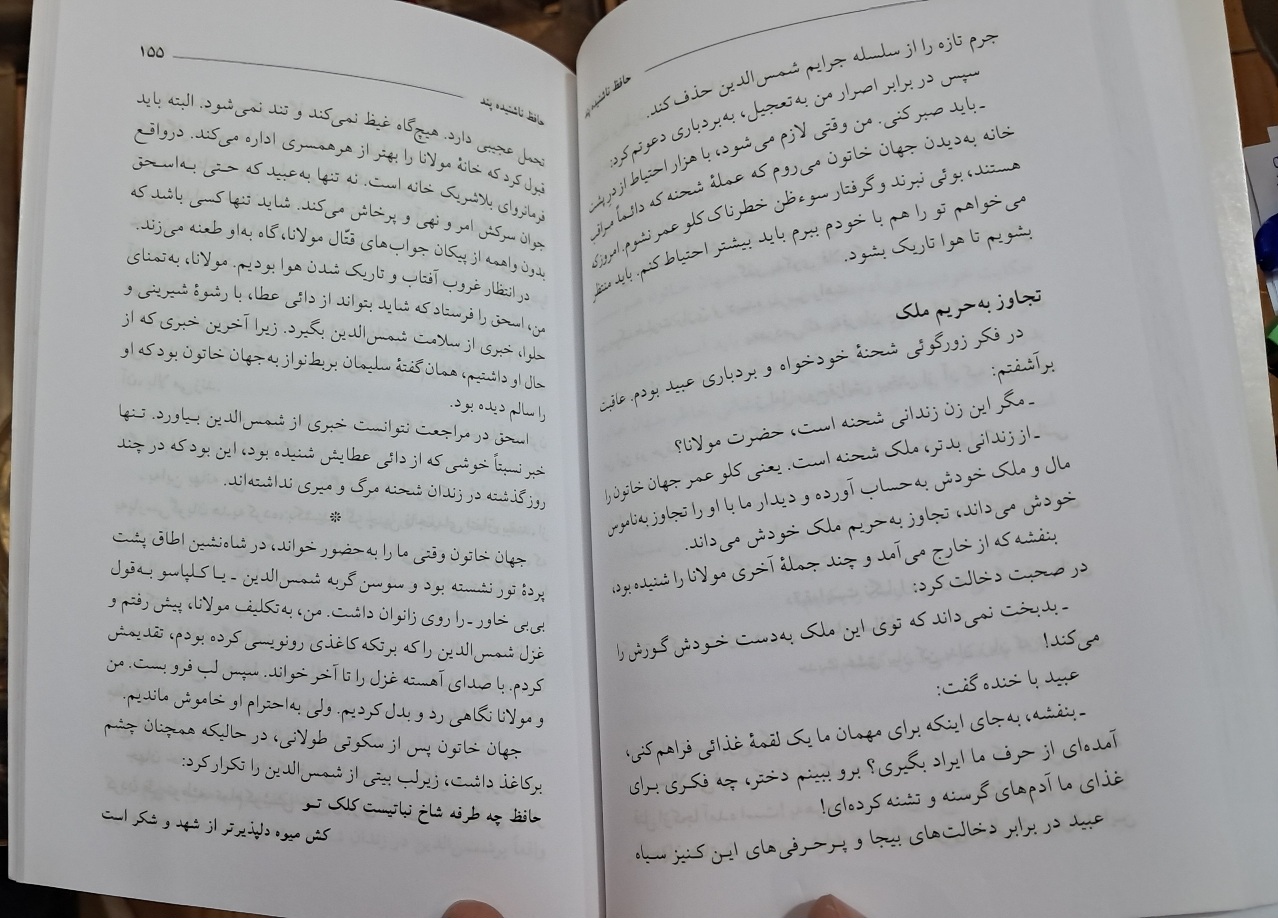 حافظ ناشنیده پند
جرم تازه را از سلسله جرایم شمس‌الدین حذف کند.
سپس در برابر اصرار من به‌تعجیل، به‌بردباری دعوتم کرد:
ـ باید صبر کنی. من وقتی لازم می‌شود، با هزار احتیاط از درِ پشت
خانه به‌دیدن جهان خاتون می‌روم که عملهٔ شحنه که دائماً مراقب
هستند، بوئی نبرند و گرفتار سوءظن خطرناک کلو عمر نشوم. امروز که
می‌خواهم تو را هم با خودم ببرم باید بیشتر احتیاط کنم. باید منتظر
بشویم تا هوا تاریک بشود.
تجاوز به‌حریم ملک
در فکر زورگوئی شحنهٔ خودخواه و بردباری عبید بودم. عاقبت
برآشفتم:
ـ مگر این زن زندانی شحنه است، حضرت مولانا؟
ـ از زندانی بدتر، ملک شحنه است. یعنی کلو عمر جهان خاتون را
مال و ملک خودش به‌حساب آورده و دیدار ما با او را تجاوز به‌ناموس
خودش می‌داند، تجاوز به‌حریم ملک خودش می‌داند.
بنفشه که از خارج می‌آمد و چند جملهٔ آخری مولانا را شنیده بود،
در صحبت دخالت کرد:
ـ بدبخت نمی‌داند که توی این ملک به‌دست خودش گورش را
می‌کند!
عبید با خنده گفت:
ـ بنفشه، به‌جای اینکه برای مهمان ما یک لقمهٔ غذائی فراهم کنی،
آمده‌ای از حرف ما ایراد بگیری؟ برو ببینم دختر، چه فکری برای
غذای ما آدم‌های گرسنه و تشنه کرده‌ای!
عبید در برابر دخالت‌های بیجا و پرحرفی‌های این کنیز سیاه
حافظ ناشنیده پند
۱۵۵
تحمل عجیبی دارد. هیچ‌گاه غیظ نمی‌کند و تند نمی‌شود. البته باید
قبول کرد که خانهٔ مولانا را بهتر از هرهمسری اداره می‌کند. درواقع
فرمانروای بلاشریک خانه است. نه تنها به‌عبید که حتی به‌اسحق
جوان سرکش امر و نهی و پرخاش می‌کند. شاید تنها کسی باشد که
بدون واهمه از پیکان جواب‌های قتّال مولانا، گاه به‌او طعنه می‌زند.
در انتظار غروب آفتاب و تاریک شدن هوا بودیم. مولانا، به‌تمنای
من، اسحق را فرستاد که شاید بتواند از دائی عطا، با رشوهٔ شیرینی و
حلوا، خبری از سلامت شمس‌الدین بگیرد. زیرا آخرین خبری که از
حال او داشتیم، همان گفتهٔ سلیمان بربط‌نواز به‌جهان خاتون بود که او
را سالم دیده بود.
اسحق در مراجعت نتوانست خبری از شمس‌الدین بیاورد. تنها
خبر نسبتاً خوشی که از دائی عطایش شنیده بود، این بود که در چند
روز گذشته در زندان شحنه مرگ و میری نداشته‌اند.
*
جهان خاتون وقتی ما را به‌حضور خواند، در شاه‌نشین اطاق پشت
پردهٔ تور نشسته بود و سوسن گربه شمس‌الدین ـ یا کلپاسو به‌قول
بی‌بی خاور ـ را روی زانوان داشت. من، به‌تکلیف مولانا، پیش رفتم و
غزل شمس‌الدین را که برتکه کاغذی رونویسی کرده بودم، تقدیمش
کردم. با صدای آهسته غزل را تا آخر خواند. سپس لب فرو بست. من
و مولانا نگاهی رد و بدل کردیم. ولی به‌احترام او خاموش ماندیم.
جهان خاتون پس از سکوتی طولانی، در حالیکه همچنان چشم
برکاغذ داشت، زیرلب بیتی از شمس‌الدین را تکرار کرد:
حافظ چه طرفه شاخ نباتیست کلک تو
کش میوه دلپذیرتر از شهد و شکر است